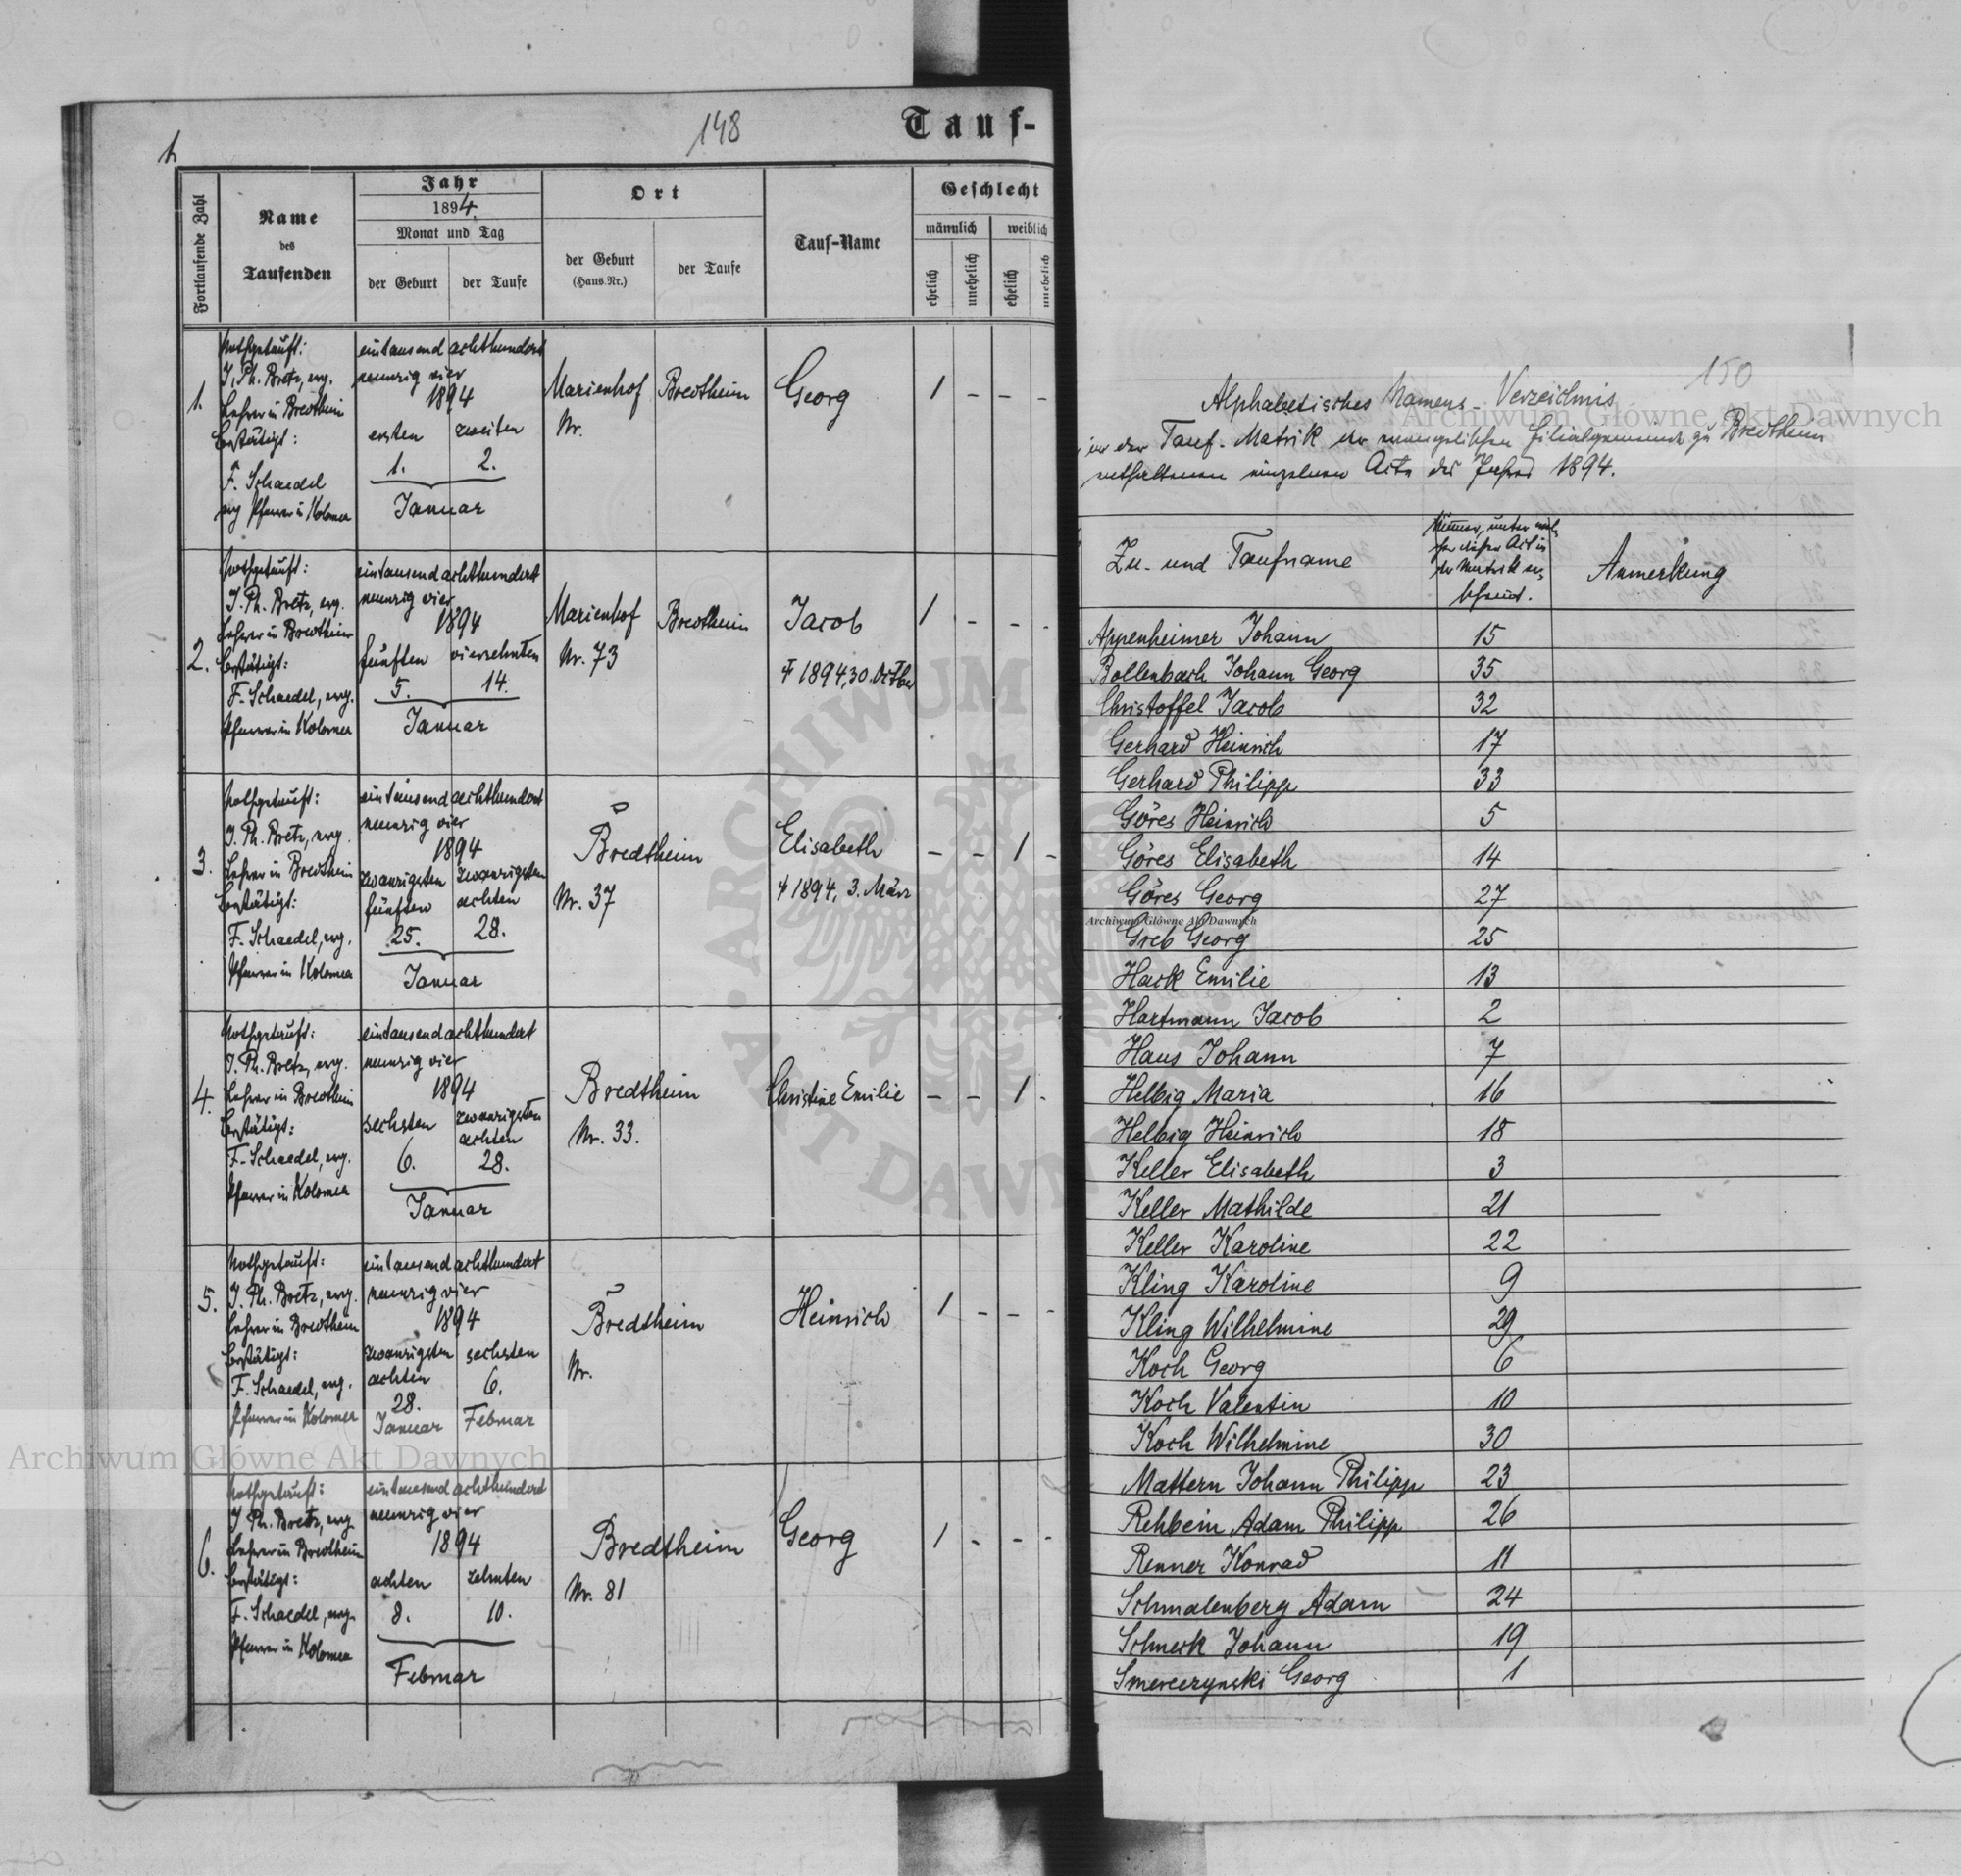 1
148
Tauf-
Fortlaufende Zahl
Name
des
Taufenden
Jahr
1894
Monat und Tag
der Geburt
der Taufe
Ort
der Geburt
(Haus-Nr.)
der Taufe
Tauf-Name
Geschlecht
männlich
weiblich
ehelich
unehelich
ehelich
unehelich
1.
Nothgetauft:
J. Ph. Bretz, evg.
Lehrer in Bredtheim
Bestätigt:
F. Schaedel
evg Pfarrer in Kolomea
eintausend achthundert
neunzig vier
1894
ersten zweiten
1. 2.
Januar
Marienhof
Nr.
Bredtheim
Georg
1 - - -
2.
Nothgetauft:
J. Ph. Bretz, evg.
Lehrer in Bredtheim
Bestätigt:
F. Schaedel, evg.
Pfarrer in Kolomea
eintausend achthundert
neunzig vier
1894
fünften vierzehnten
5. 14.
Januar
Marienhof
Nr. 73
Bredtheim
Jacob
† 1894, 30. Octber
1 - - -
3.
Nothgetauft:
J. Ph. Bretz, evg.
Lehrer in Bredtheim
Bestätigt:
F. Schaedel, evg.
Pfarrer in Kolomea
eintausend achthundert
neunzig vier
1894
zwanzigsten zwanzigsten
fünften achten
25. 28.
Januar
Bredtheim
Nr. 37
Elisabeth
† 1894, 3. März
- - 1 -
4.
Nothgetauft:
J. Ph. Bretz, evg.
Lehrer in Bredtheim
Bestätigt:
F. Schaedel, evg.
Pfarrer in Kolomea
eintausend achthundert
neunzig vier
1894
sechsten zwanzigsten
achten
6. 28.
Januar
Bredtheim
Nr. 33.
Christine Emilie
- - 1 -
5.
Nothgetauft:
J. Ph. Bretz, evg.
Lehrer in Bredtheim
Bestätigt:
F. Schaedel, evg.
Pfarrer in Kolomea
eintausend achthundert
neunzig vier
1894
zwanzigsten sechsten
achten 6.
28.
Januar Februar
Bredtheim
Nr.
Heinrich
1 - - -
6.
Nothgetauft:
J. Ph. Bretz, evg.
Lehrer in Bredtheim
Bestätigt:
F. Schaedel, evg.
Pfarrer in Kolomea
eintausend achthundert
neunzig vier
1894
achten zehnten
8. 10.
Februar
Bredtheim
Nr. 81
Georg
1 - - -
150
Alphabetisches Namens-Verzeichnis
in der Tauf-Matrik der evangelischen Filialgemeinde zu Bredtheim
enthaltenen einzelnen Acte des Jahres 1894.
Zu- und Taufname
Nummer, unter wel-
cher dieser Act in
der Matrik
Anmerkung
Appenheimer Johann 15
Bollenbach Johann Georg 35
Christoffel Jacob 32
Gerhard Heinrich 17
Gerhard Philipp 33
Göres Heinrich 5
Göres Elisabeth 14
Göres Georg 27
Greb Georg 25
Hack Emilie 13
Hartmann Jacob 2
Haus Johann 7
Helbig Maria 16
Helbig Heinrich 18
Keller Elisabeth 3
Keller Mathilde 21
Keller Karoline 22
Kling Karoline 9
Kling Wilhelmine 29
Koch Georg 6
Koch Valentin 10
Koch Wilhelmine 30
Mattern Johann Philipp 23
Rehbein Adam Philipp 26
Renner Konrad 11
Schmalenberg Adam 24
Schneck Johann 19
Smerczynski Georg 1
Archiwum Główne Akt Dawnych
Archiwum Główne Akt Dawnych
Archiwum Główne Akt Dawnych